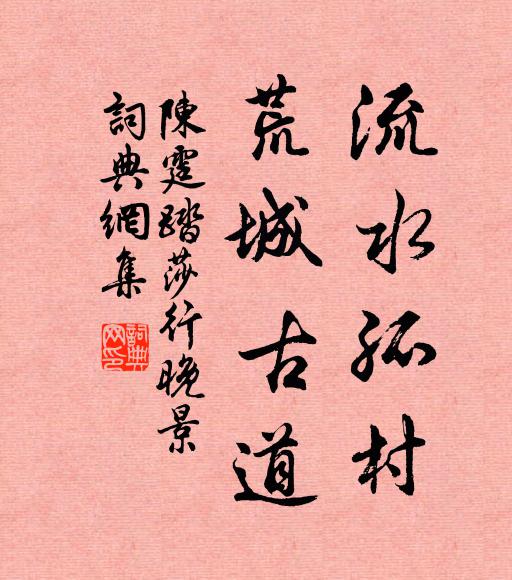 流水孤村
荒城古道
陳霆踏莎行晚景
詞典網集
詞典網印